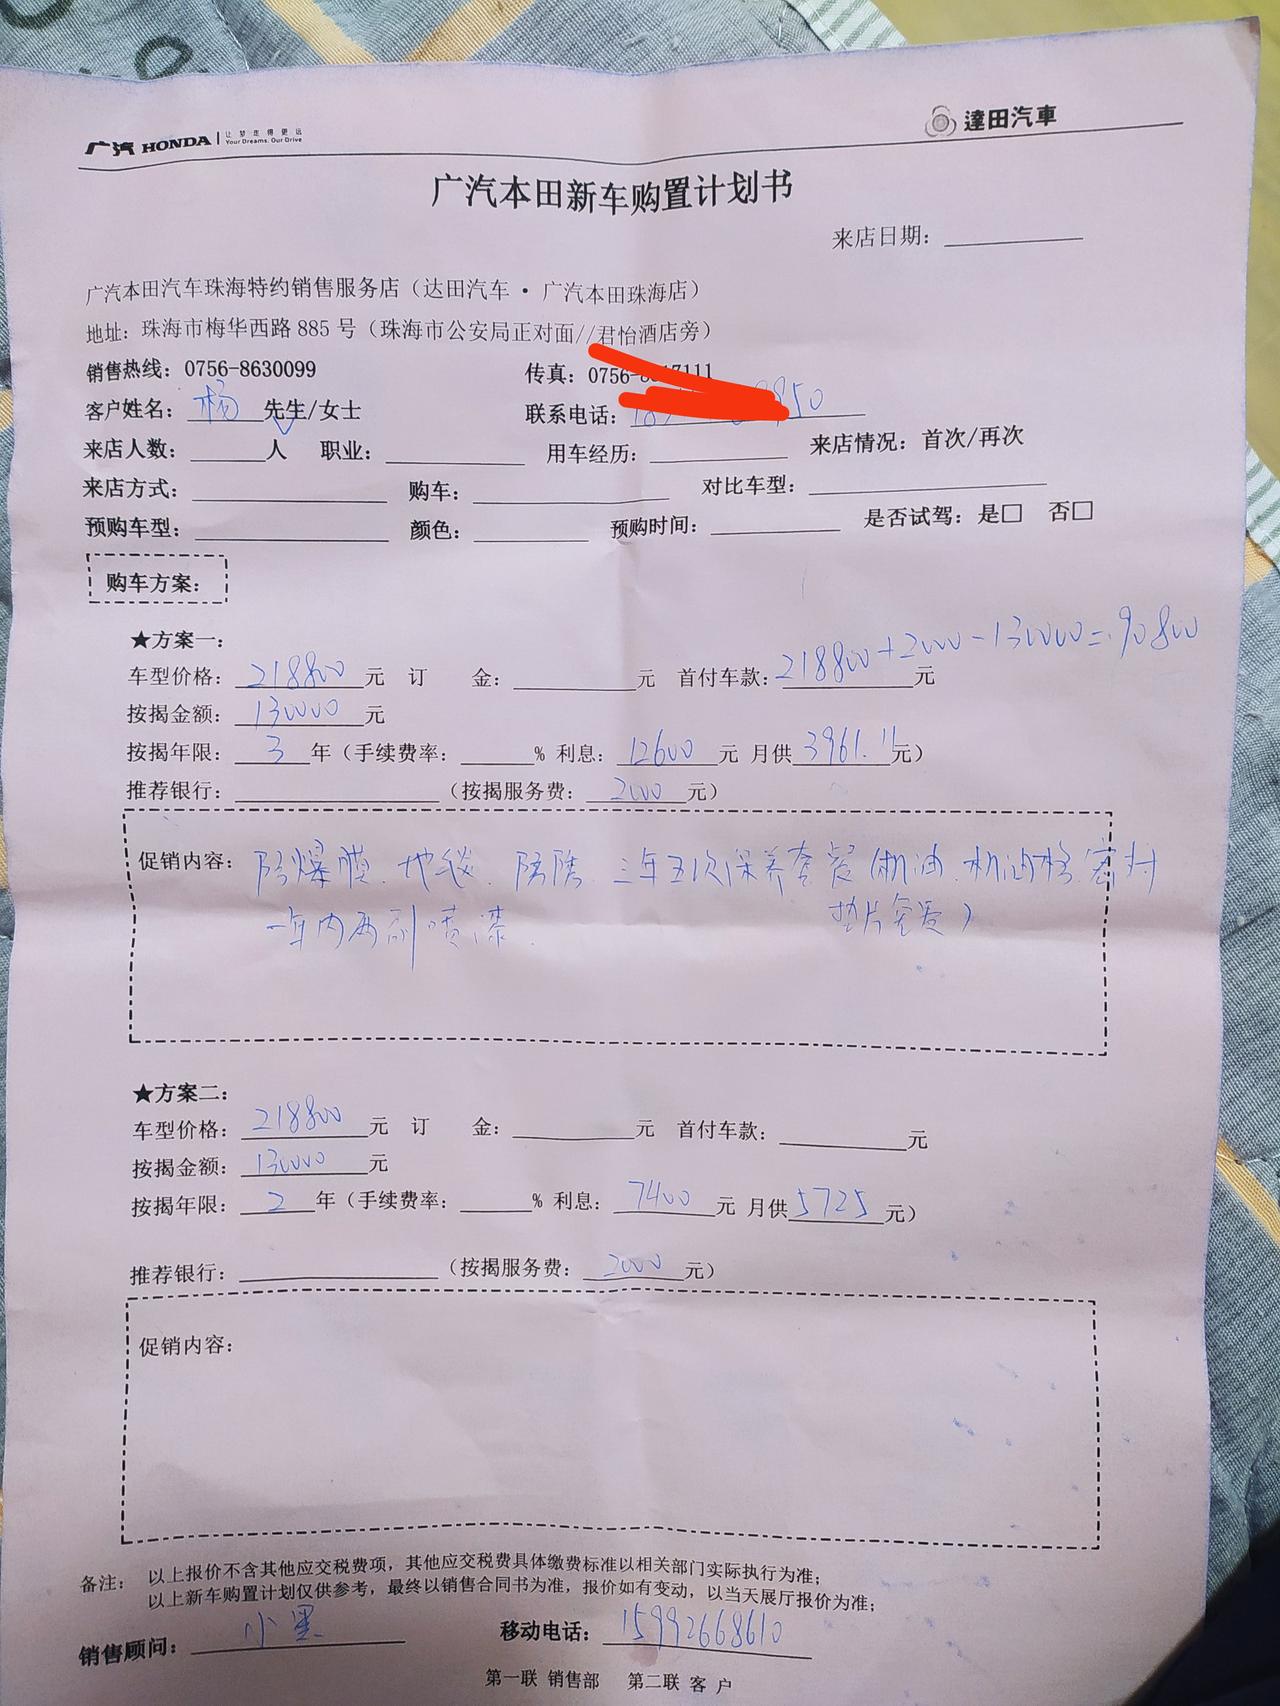 广汽 HONDA 让梦走得更远 Your Dreams. Our Drive 達田汽車
广汽本田新车购置计划书
来店日期:
广汽本田汽车珠海特约销售服务店（达田汽车・广汽本田珠海店）
地址: 珠海市梅华西路 885 号（珠海市公安局正对面//君怡酒店旁）
销售热线: 0756-8630099 传真: 0756-
客户姓名: 杨 先生/女士 联系电话:
来店人数: 人 职业: 用车经历: 来店情况: 首次/再次
来店方式: 购车: 对比车型:
预购车型: 颜色: 预购时间: 是否试驾: 是□ 否□
购车方案:
★方案一:
车型价格: 218800 元 订 金: 元 首付车款: 218800+2000-130000=90800 元
按揭金额: 130000 元
按揭年限: 3 年（手续费率: % 利息: 12600 元 月供 3961.11 元）
推荐银行: （按揭服务费: 2000 元）
促销内容: 防爆膜、地毯、 三年五次保养套餐（机油、机油格、密封
垫片免费）
一年内两副喷漆
★方案二:
车型价格: 218800 元 订 金: 元 首付车款: 元
按揭金额: 130000 元
按揭年限: 2 年（手续费率: % 利息: 7400 元 月供 5725 元）
推荐银行: （按揭服务费: 2000 元）
促销内容:
备注: 以上报价不含其他应交税费项，其他应交税费具体缴费标准以相关部门实际执行为准;
以上新车购置计划仅供参考，最终以销售合同书为准，报价如有变动，以当天展厅报价为准;
销售顾问: 小黑 移动电话: 15992668610
第一联 销售部 第二联 客 户